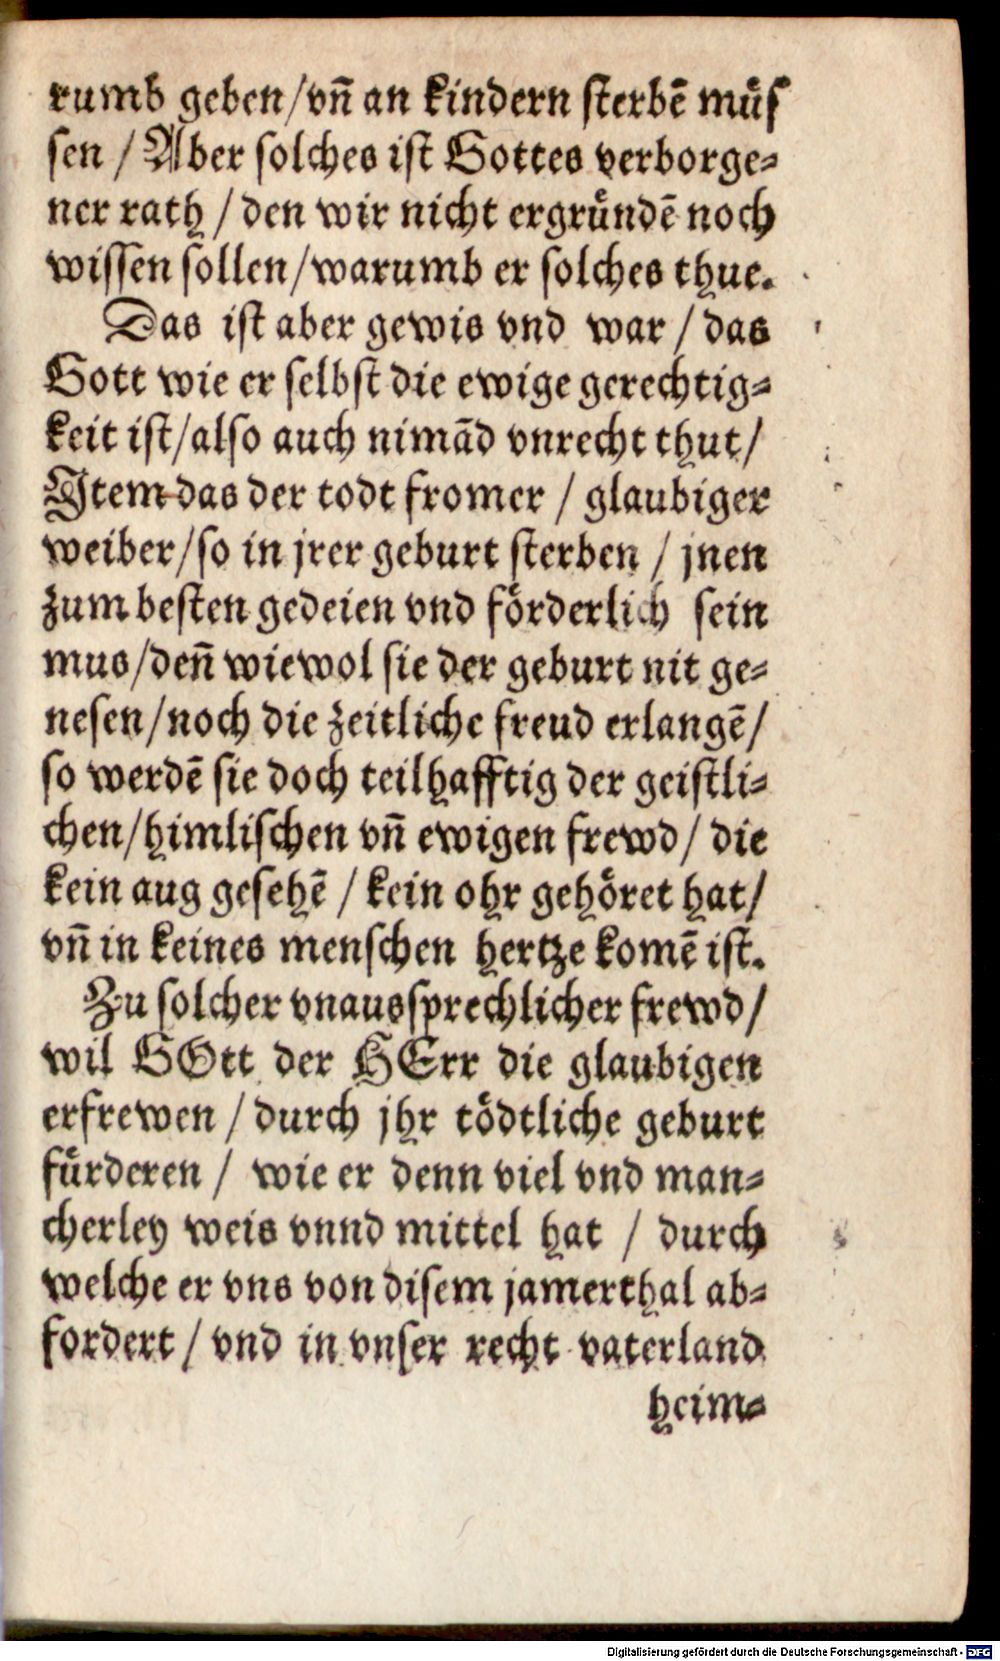 rumb geben/vn̄ an kindern sterbē müs
sen / Aber solches ist Gottes verborge-
ner rath / den wir nicht ergründē noch
wissen sollen/warumb er solches thue.
Das ist aber gewis vnd war / das
Gott wie er selbst die ewige gerechtig-
keit ist/also auch nimād vnrecht thut/
Item das der todt fromer / glaubiger
weiber/so in jrer geburt sterben / jnen
zum besten gedeien vnd förderlich sein
mus/den̄ wiewol sie der geburt nit ge-
nesen/noch die zeitliche freud erlangē/
so werdē sie doch teilhafftig der geistli-
chen/himlischen vn̄ ewigen frewd/ die
kein aug gesehē / kein ohr gehöret hat/
vn̄ in keines menschen hertze komē ist.
Zu solcher vnaussprechlicher frewd/
wil GOtt der HErr die glaubigen
erfrewen / durch jhr tödtliche geburt
fürderen / wie er denn viel vnd man-
cherley weis vnnd mittel hat / durch
welche er vns von disem jamerthal ab-
fordert / vnd in vnser recht vaterland
heim-
Digitalisierung gefördert durch die Deutsche Forschungsgemeinschaft - DFG